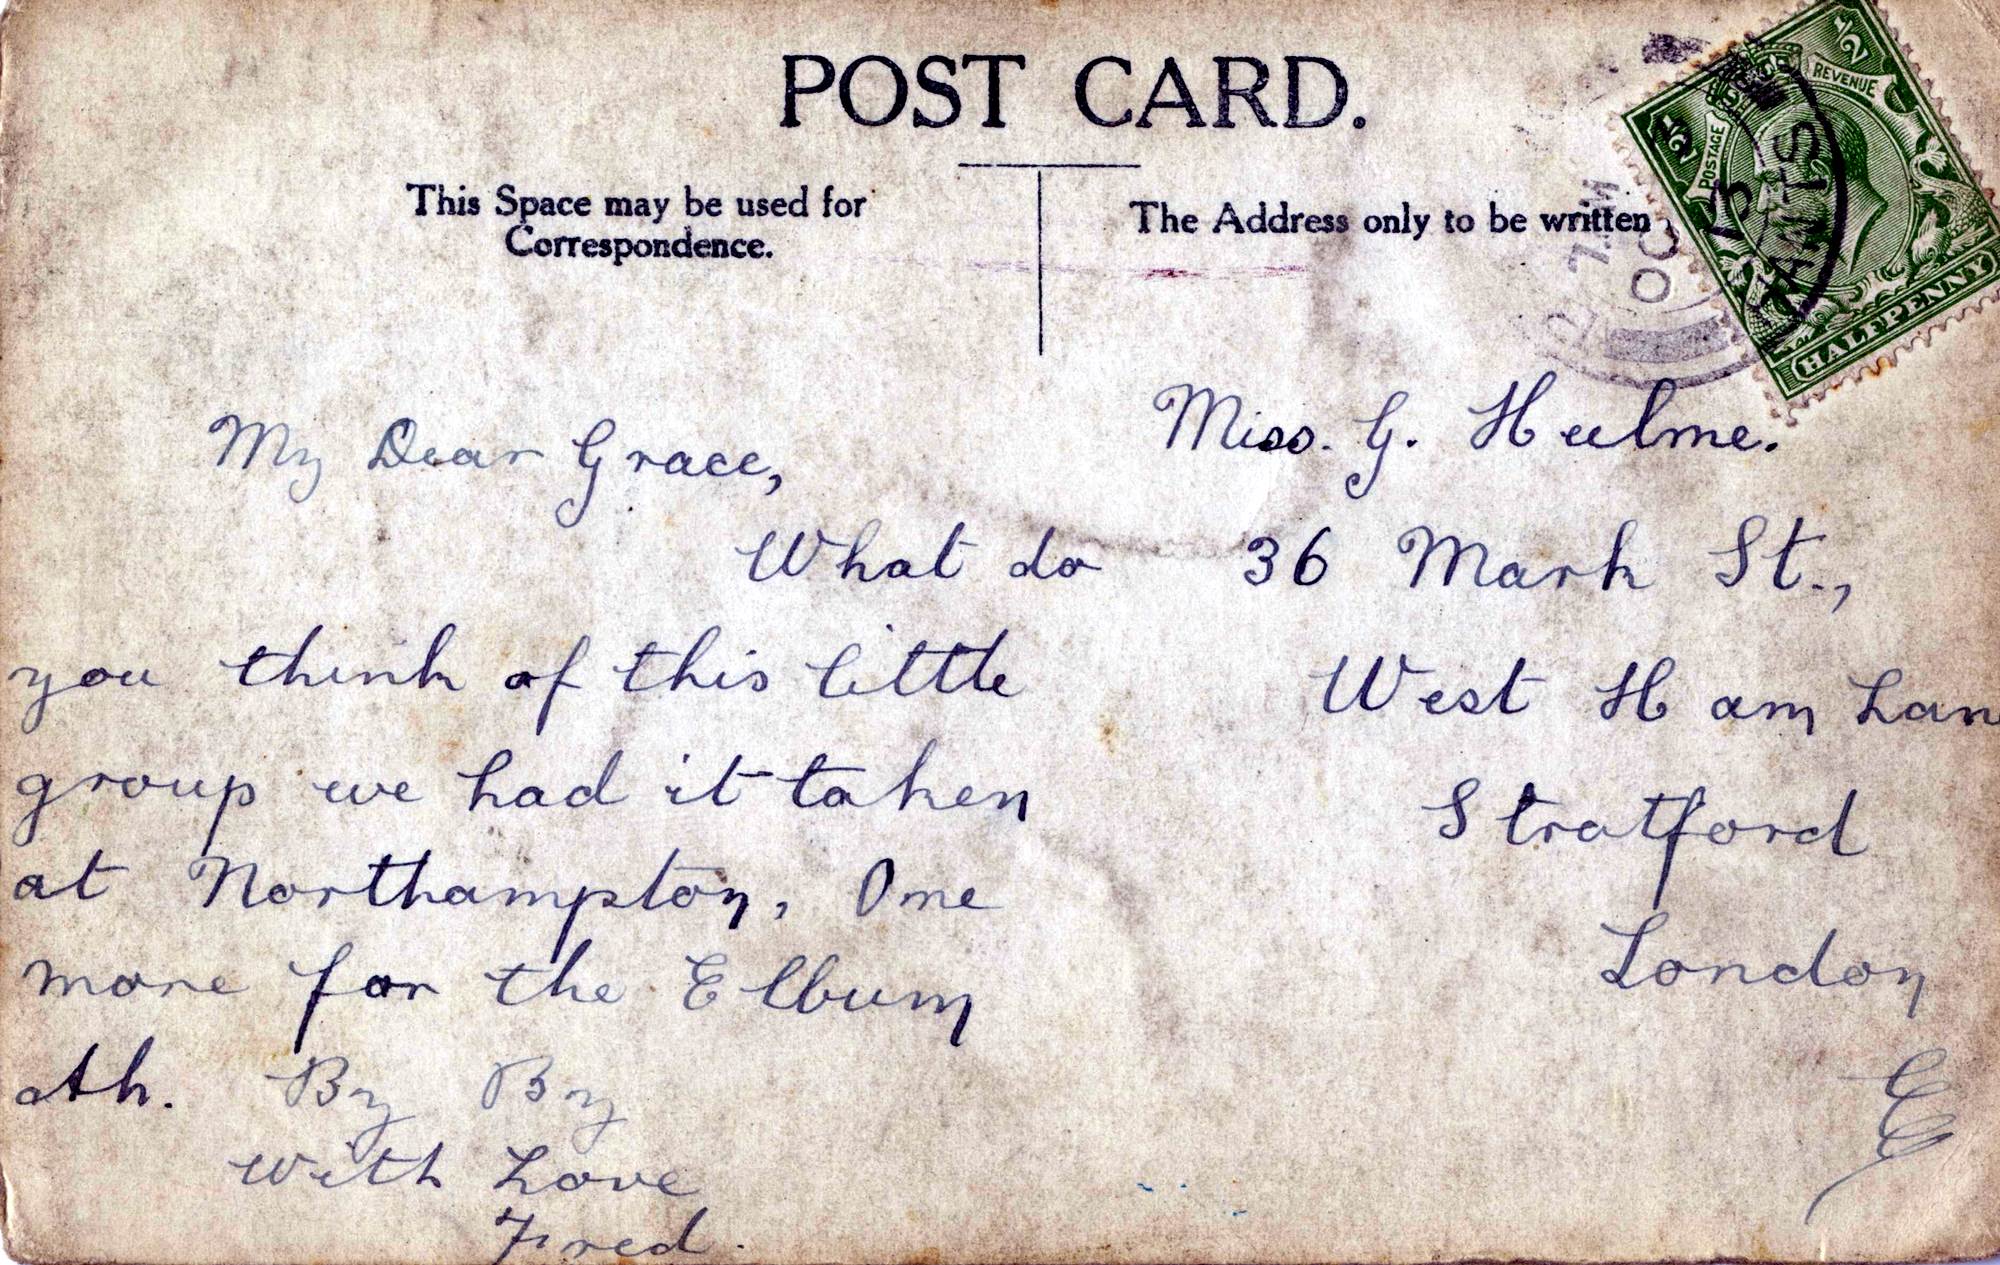 POST CARD.
This Space may be used for
Correspondence.
The Address only to be written
½
½
POSTAGE
REVENUE
HALFPENNY
OC
HANTS
My Dear Grace,
What do
you think of this little
group we had it taken
at Northampton, One
more for the Elbum
Ah. By By
With Love
Fred.
Miss. G. Hulme.
36 Mark St.,
West Ham Lan
Stratford
London
E